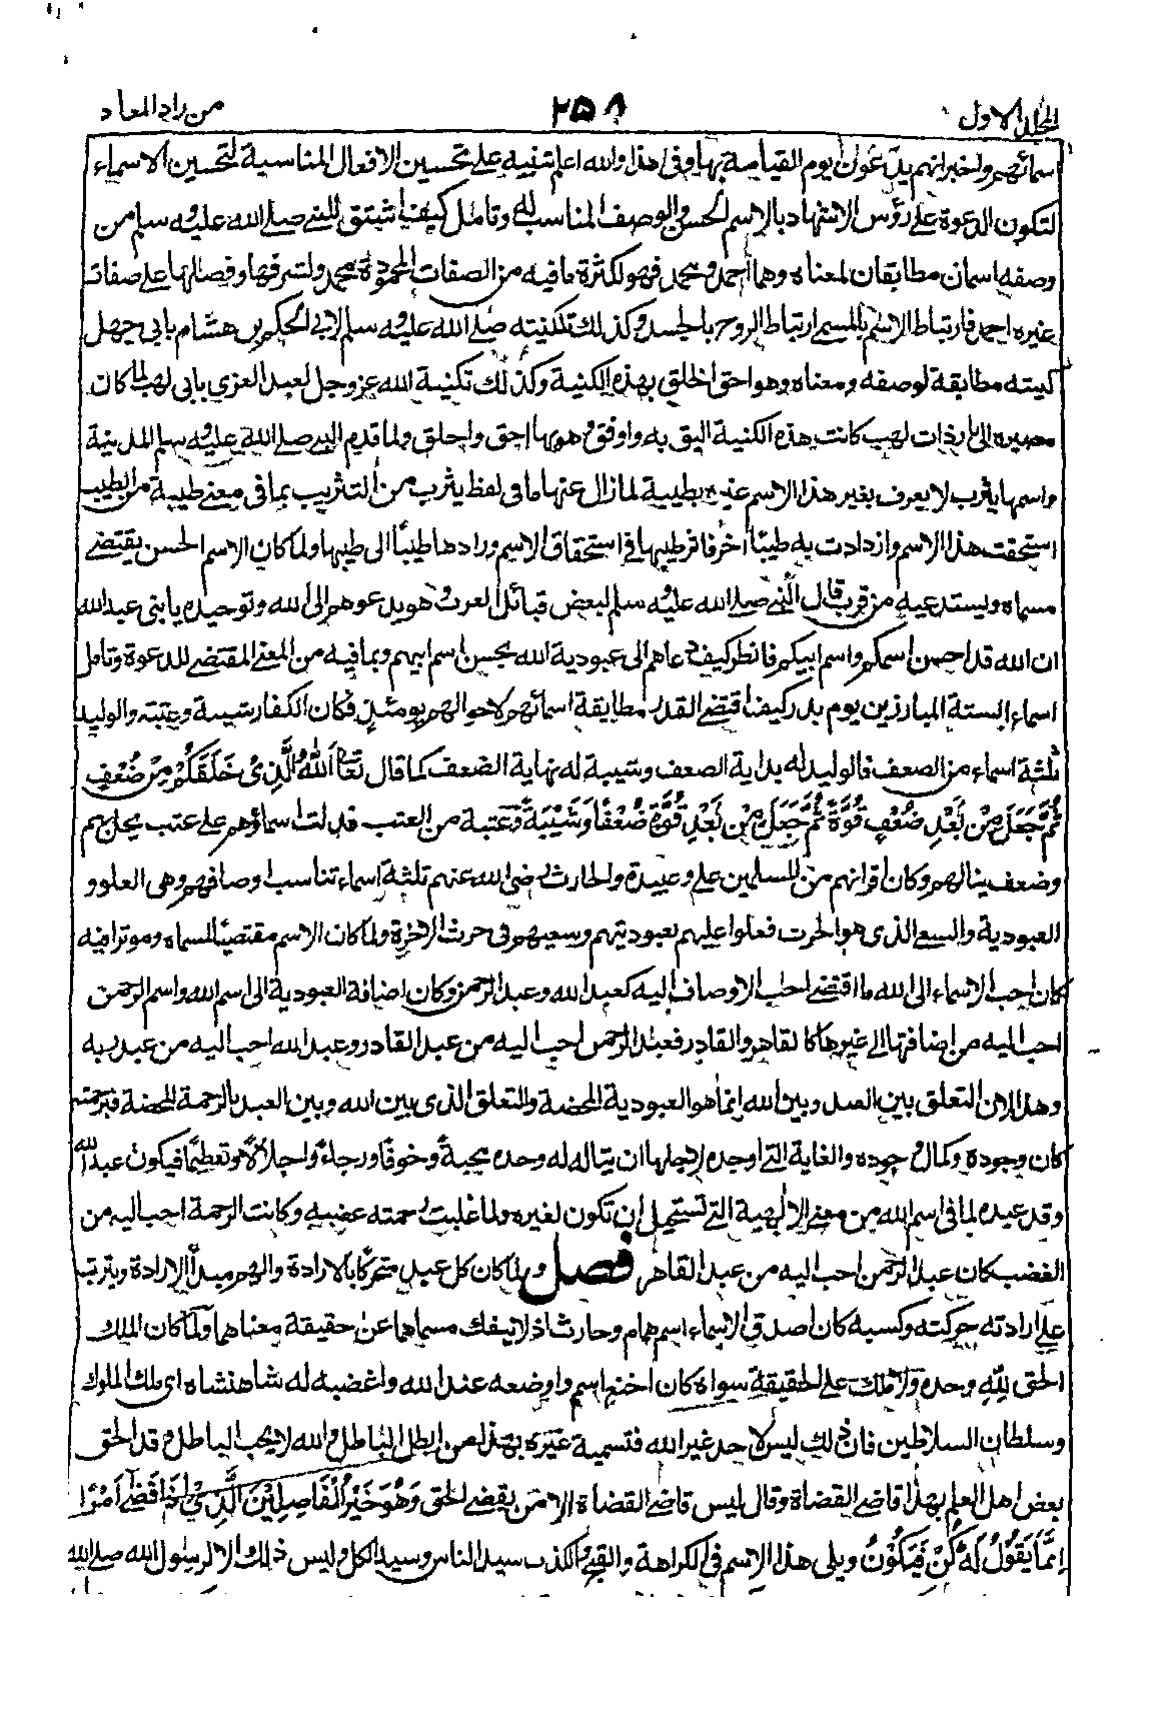 المجلد الاول ٢٥٨ من زاد المعاد
سمائهم واخبر انهم يدعون يوم القيامة بها وفى هذا والله اعلم تنبيه على تحسين الافعال المناسبة لتحسين الاسماء
لتكون الدعوة على رؤس الاشهاد بالاسم الحسن والوصف المناسب له وتامل كيف اشتق للنبى صلى الله عليه وسلم من
وصفه اسمان مطابقان لمعناه وهما احمد ومحمد فهو لكثرة ما فيه من الصفات المحمودة محمد ولشرفها وفضلها على صفات
غيره احمد فارتباط الاسم بالمسمى ارتباط الروح بالجسد وكذلك تكنيته صلى الله عليه وسلم لابى الحكم بن هشام بابى جهل
كنيته مطابقة لوصفه ومعناه وهو احق الخلق بهذه الكنية وكذلك تكنية الله عز وجل لعبد العزى بابى لهب لما كان
مصيره الى نار ذات لهب كانت هذه الكنية اليق به واوفق وهو بها احق واخلق ولما قدم النبى صلى الله عليه وسلم المدينة
واسمها يثرب لا يعرف بغير هذا الاسم غيره بطيبة لما زال عنها ما فى لفظ يثرب من التثريب بما فى معنى طيبة من الطيب
استحقت هذا الاسم وازدادت به طيبا اخر فاثر طيبها فى استحقاق الاسم وزادها طيبًا الى طيبها ولما كان الاسم الحسن يقتضى
مسماه ويستدعيه من قرب قال النبى صلى الله عليه وسلم لبعض قبائل العرب وهو يدعوهم الى الله وتوحيده يا بنى عبد الله
ان الله قد احسن اسمكم واسم ابيكم فانظر كيف دعاهم الى عبودية الله بحسن اسم ابيهم وبما فيه من المعنى المقتضى للدعوة وتامل
اسماء الستة المبارزين يوم بدر كيف اقتضى القدر مطابقة اسمائهم لاحوالهم يومئذ فكان الكفار شيبة وعتبة والوليد
ثلثة اسماء من الضعف فالوليد له بداية الضعف وشيبة له نهاية الضعف كما قال تعا اَللهُ الَّذِىْ خَلَقَكُمْ مِنْ ضُعْفٍ
ثُمَّ جَعَلَ مِنْ بَعْدِ ضُعْفٍ قُوَّةً ثُمَّ جَعَلَ مِنْ بَعْدِ قُوَّةٍ ضُعْفًا وَشَيْبَةً وعتبة من العتب فدلت اسماؤهم على عتب يحل بهم
وضعف ينالهم وكان اقرانهم من المسلمين على وعبيدة والحارث رضى الله عنهم ثلثة اسماء تناسب اوصافهم وهى العلو و
العبودية والسعى الذى هو الحرث فعلوا عليهم بعبوديتهم وسعيهم فى حرث الاخرة ولما كان الاسم مقتضيًا لمسماه وموثرا فيه
كان احب الاسماء الى الله ما اقتضى احب الاوصاف اليه كعبد الله وعبد الرحمن وكان اضافة العبودية الى اسم الله واسم الرحمن
احب اليه من اضافتها الى غيرها كالقاهر والقادر فعبد الرحمن احب اليه من عبد القادر وعبد الله احب اليه من عبد ربه
وهذا لان التعلق بين العبد وبين الله انما هو العبودية المحضة والتعلق الذى بين الله وبين العبد بالرحمة المحضة فبرحمته
كان وجوده وكمال وجوده والغاية التى اوجده لاجلها ان يتاله له وحده محبةً وخوفًا ورجاءً واجلالًا وتعظيمًا فيكون عبد الله
وقد عبده لما فى اسم الله من معنى الالهية التى تستحيل ان تكون لغيره ولما غلبت رحمته غضبه وكانت الرحمة احب اليه من
الغضب كان عبد الرحمن احب اليه من عبد القاهر فصل ولما كان كل عبد متحركًا بالارادة والهم مبدأ الارادة ويترتب
على ارادته حركته وكسبه كان اصدق الاسماء اسم همام وحارث اذ لا ينفك مسماهما عن حقيقة معناهما ولما كان الملك
الحق لله وحده ولا ملك على الحقيقة سواه كان اخنع اسم واوضعه عند الله واغضبه له شاهنشاه اى ملك الملوك
وسلطان السلاطين فان ذلك ليس لاحد غير الله فتسمية غيره بهذا من ابطل الباطل والله لا يحب الباطل وقد الحق
بعض اهل العلم بهذا قاضى القضاة وقال ليس قاضى القضاة الا من يقضى الحق وَهُوَ خَيْرُ الْفَاصِلِيْنَ الَّذِىْ اِذَا قَضٰى اَمْرًا
اِنَّمَا يَقُوْلُ لَهُ كُنْ فَيَكُوْنُ ويلى هذا الاسم فى الكراهة والقبح والكذب سيد الناس وسيد الكل وليس ذلك الا لرسول الله صلى الله